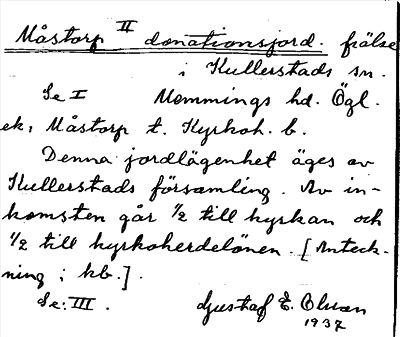 Måstorp II donationsjord. frälse
i Kullerstads sn.
Se I Memmings hd. Ögl.
ek, Måstorp t. Kyrkoh. b.
Denna jordlägenhet äges av
Kullerstads församling. Av in-
komsten går 1/2 till kyrkan och
1/2 till kyrkoherdelönen. [Anteck-
ning i kb.].
Se: III. Gustaf E. Olsson
1937